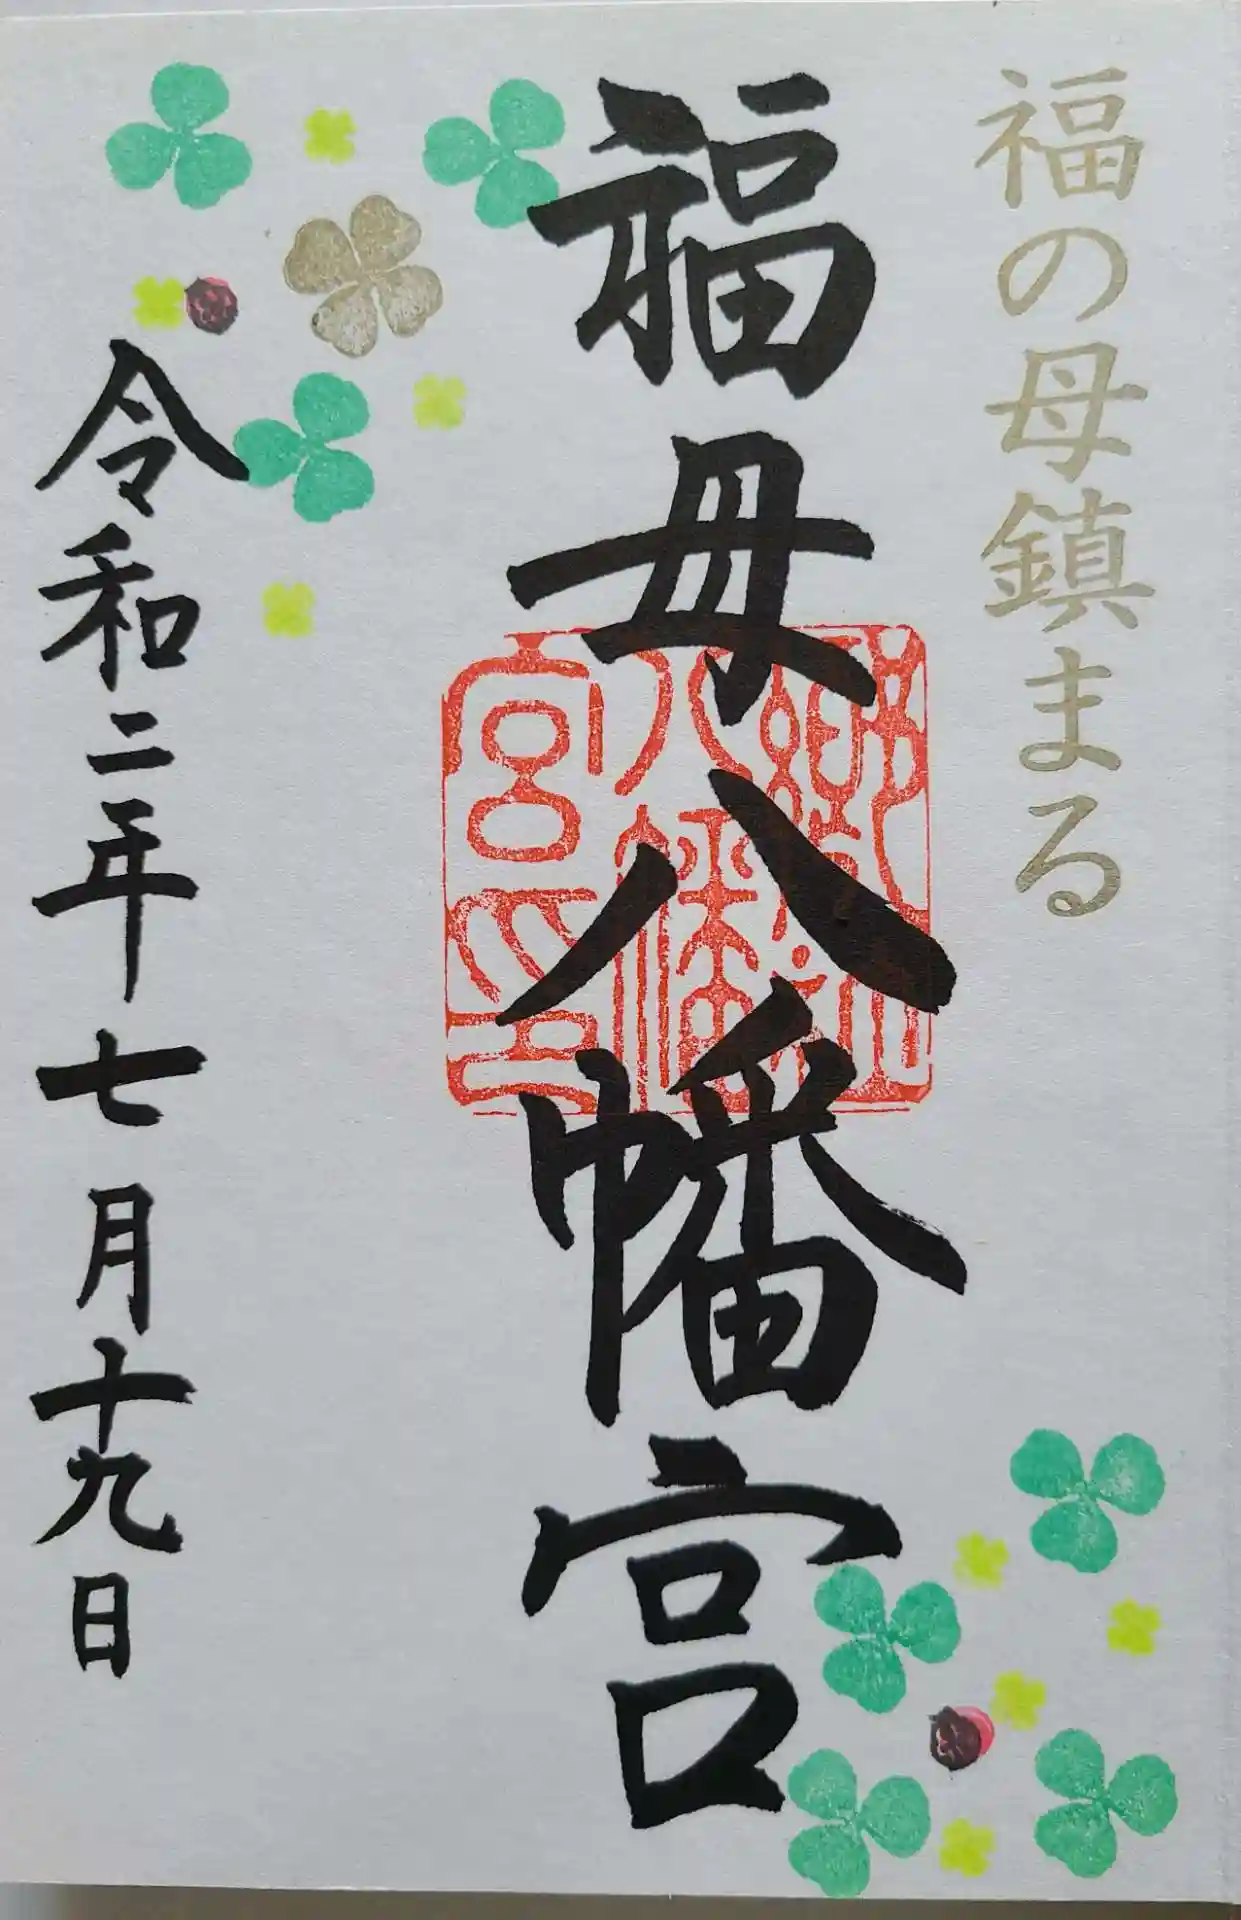 福の母鎮まる
福母八幡宮
八幡
宮印
令和二年七月十九日